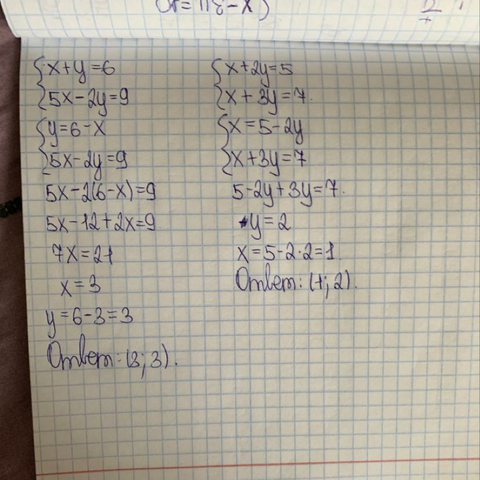 {x+y=6
{5x-2y=9
{y=6-x
{5x-2y=9
5x-2(6-x)=9
5x-12+2x=9
7x=21
x=3
y=6-3=3
Ответ: (3; 3).
{x+2y=5
{x+3y=7.
{x=5-2y
{x+3y=7
5-2y+3y=7.
y=2
x=5-2·2=1.
Ответ: (1; 2).